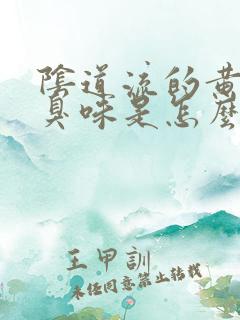 陰道流的黄
臭味是怎麼
王甲訓
未经同意禁止转载